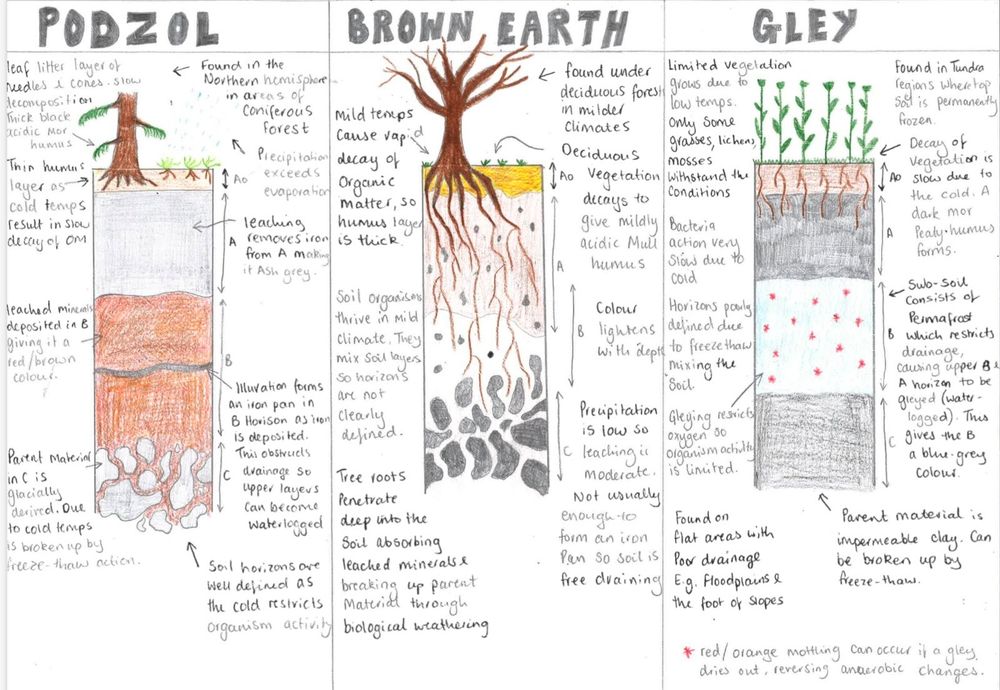 PODZOL
leaf litter layer of
needles & cones. slow
decomposition
Thick black
acidic mor
humus
Thin humus
layer as
cold temps
result in slow
decay of OM
leached minerals
deposited in B
giving it a
red/brown
colour.
Parent Material
in C is
glacially
derived. Due
to cold temps
is broken up by
freeze-thaw action.
Found in the
Northern hemisphere
in areas of
Coniferous
Forest
Precipitation
exceeds
evaporation
Ao
A
B
C
leaching
removes iron
from A making
it Ash grey.
Illuvation forms
an iron pan in
B Horison as iron
is deposited.
This obstructs
drainage so
upper layers
can become
waterlogged
Soil horizons are
well defined as
the cold restricts
organism activity
BROWN EARTH
Mild temps
cause rapid
decay of
Organic
matter, so
humus layer
is thick.
Soil organisms
thrive in mild
climate. They
mix soil layers
so horizons
are not
clearly
defined.
Tree roots
Penetrate
deep into the
Soil absorbing
leached minerals &
breaking up parent
Material through
biological weathering
found under
deciduous forest
in milder
climates
Deciduous
Vegetation
decays to
give mildly
acidic Mull
humus
Ao
A
B
C
Colour
lightens
with depth
Precipitation
is low so
leaching is
moderate.
Not usually
enough to
form an iron
Pan so soil is
free draining
GLEY
Limited vegetation
grows due to
low temps.
Only some
grasses, lichens,
mosses
withstand the
Conditions
Bacteria
action very
slow due to
cold
Horizons poorly
defined due
to freeze thaw
mixing the
Soil.
Gleying restricts
oxygen so
organism activity
is limited.
Found on
flat areas with
Poor drainage
E.g. Floodplains &
the foot of slopes
Found in Tundra
regions where top
Soil is permanently
frozen.
Decay of
vegetation is
slow due to
the cold. A
dark mor
Peaty-humus
forms.
Ao
A
B
C
Sub-soil
consists of
Permafrost
which restricts
drainage,
causing upper B &
A horizon to be
gleyed (water-
logged). This
gives the B
a blue-grey
colour.
Parent material is
impermeable clay. Can
be broken up by
freeze-thaw.
* red/orange mottling can occur if a gley
dries out, reversing anaerobic changes.